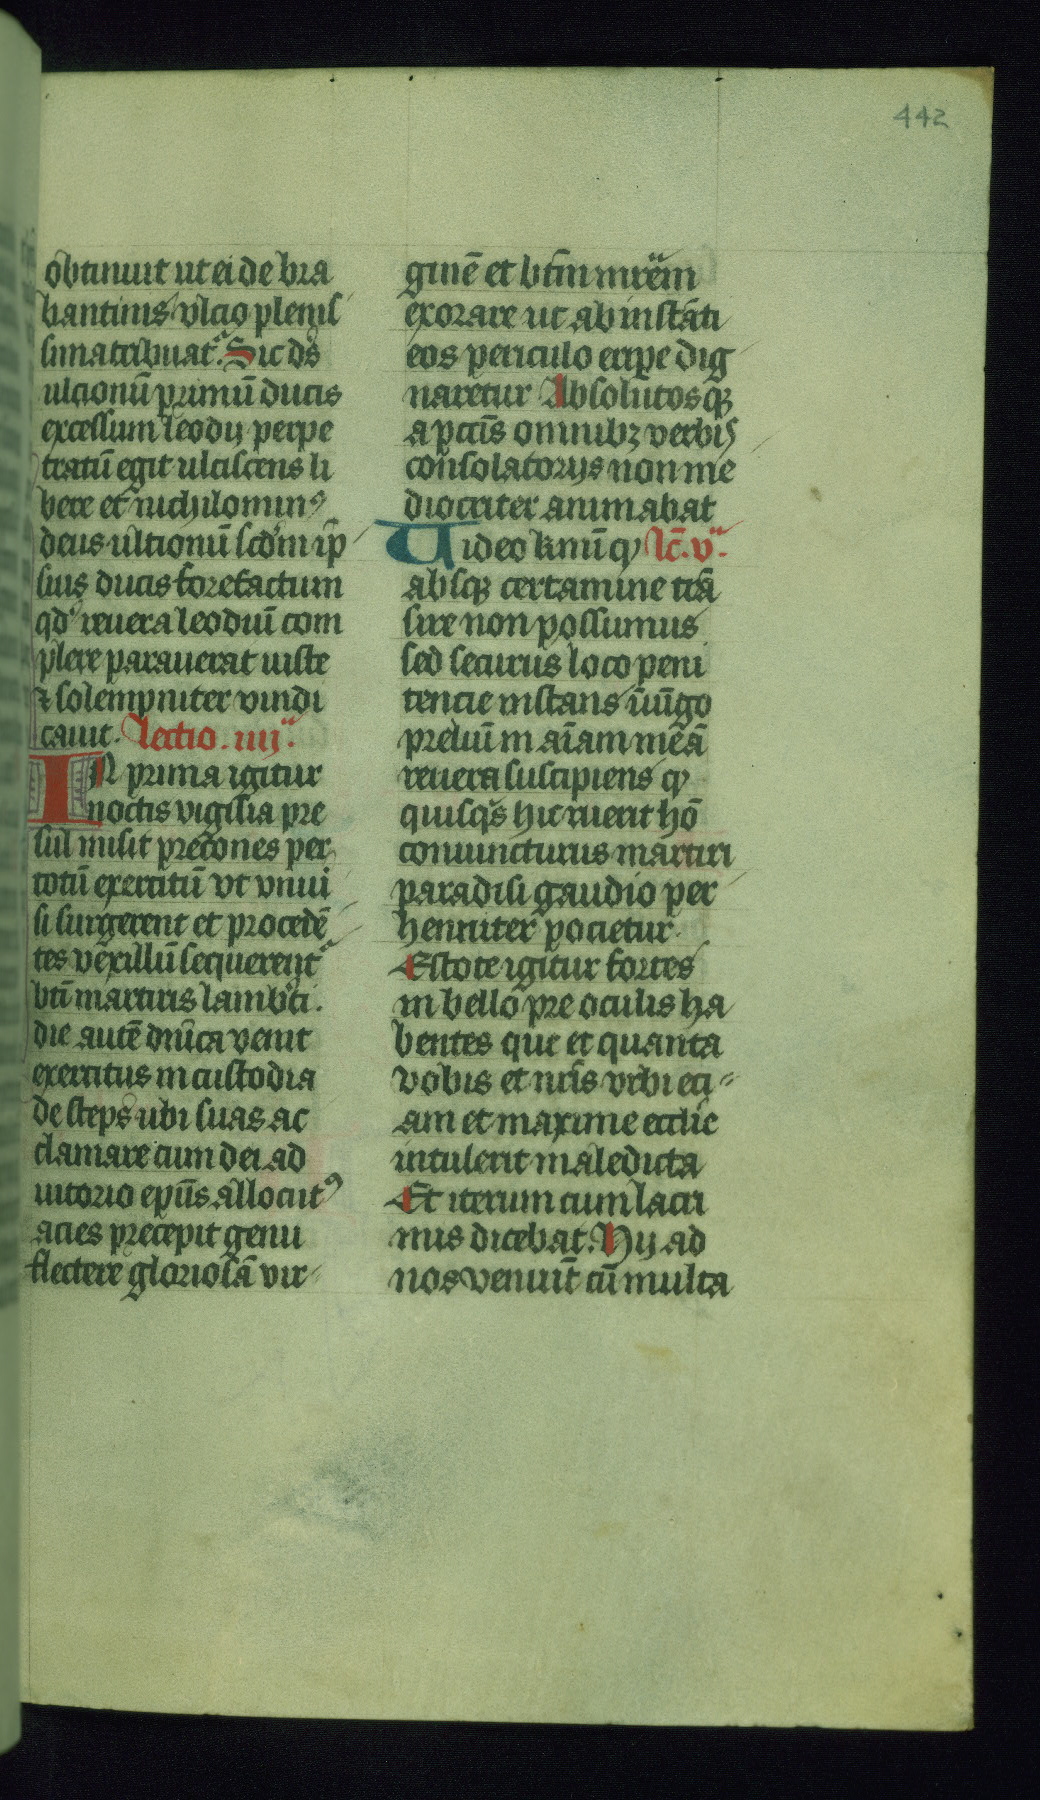 442
obtinuit ut ei de bra
bantinis ulcio plenis
sima tribuat᷑. Sic ds̄
ulcionū primū ducis
excessum leodij perpe
tratū egit ulciscens li
bere et nichilomin⁹
deus ultionū scd̄m ip̄
sius ducis forefactum
qd̄ reuera leodiū com
plere parauerat iuste
⁊ solempniter vindi
cauit. Lectio .iiij.
IN prima igitur
noctis vigilia pre
sul misit precones per
totū exercitū vt vniu
si surgerent et procedē
tes vexillū sequerent᷑
bti᷑ martiris lamb̄ti.
die autē dn̄ica venit
exercitus in custodia
de steps ubi suas ac
clamare cum dei ad
iutorio ep̄us allocut⁹
acies precepit genu
flectere gloriosā vir
ginē et btm̄ mr̄em
exorare ut ab instāti
eos periculo eripe dig
naretur Absolutosqꝫ
a pctīs omnibꝫ verbis
consolatorijs non me
diocriter animabat
Uideo kmī qꝫ lc̄. v.
absqꝫ certamine trā
sire non possumus
sed securus loco peni
tencie instans iūngo
preliū in aīam meā
reuera suscipiens qꝫ
quisqs̄ hic ruerit hō
coniuncturus martiri
paradisi gaudio per
henniter pocietur.
Estote igitur fortes
in bello pre oculis ha
bentes que et quanta
vobis et nr̄is vrbi eci
am et maxime eccl̄ie
intulerit maledicta
Et iterum cum lacri
mis dicebat. Hij ad
nos veniūt cū multa